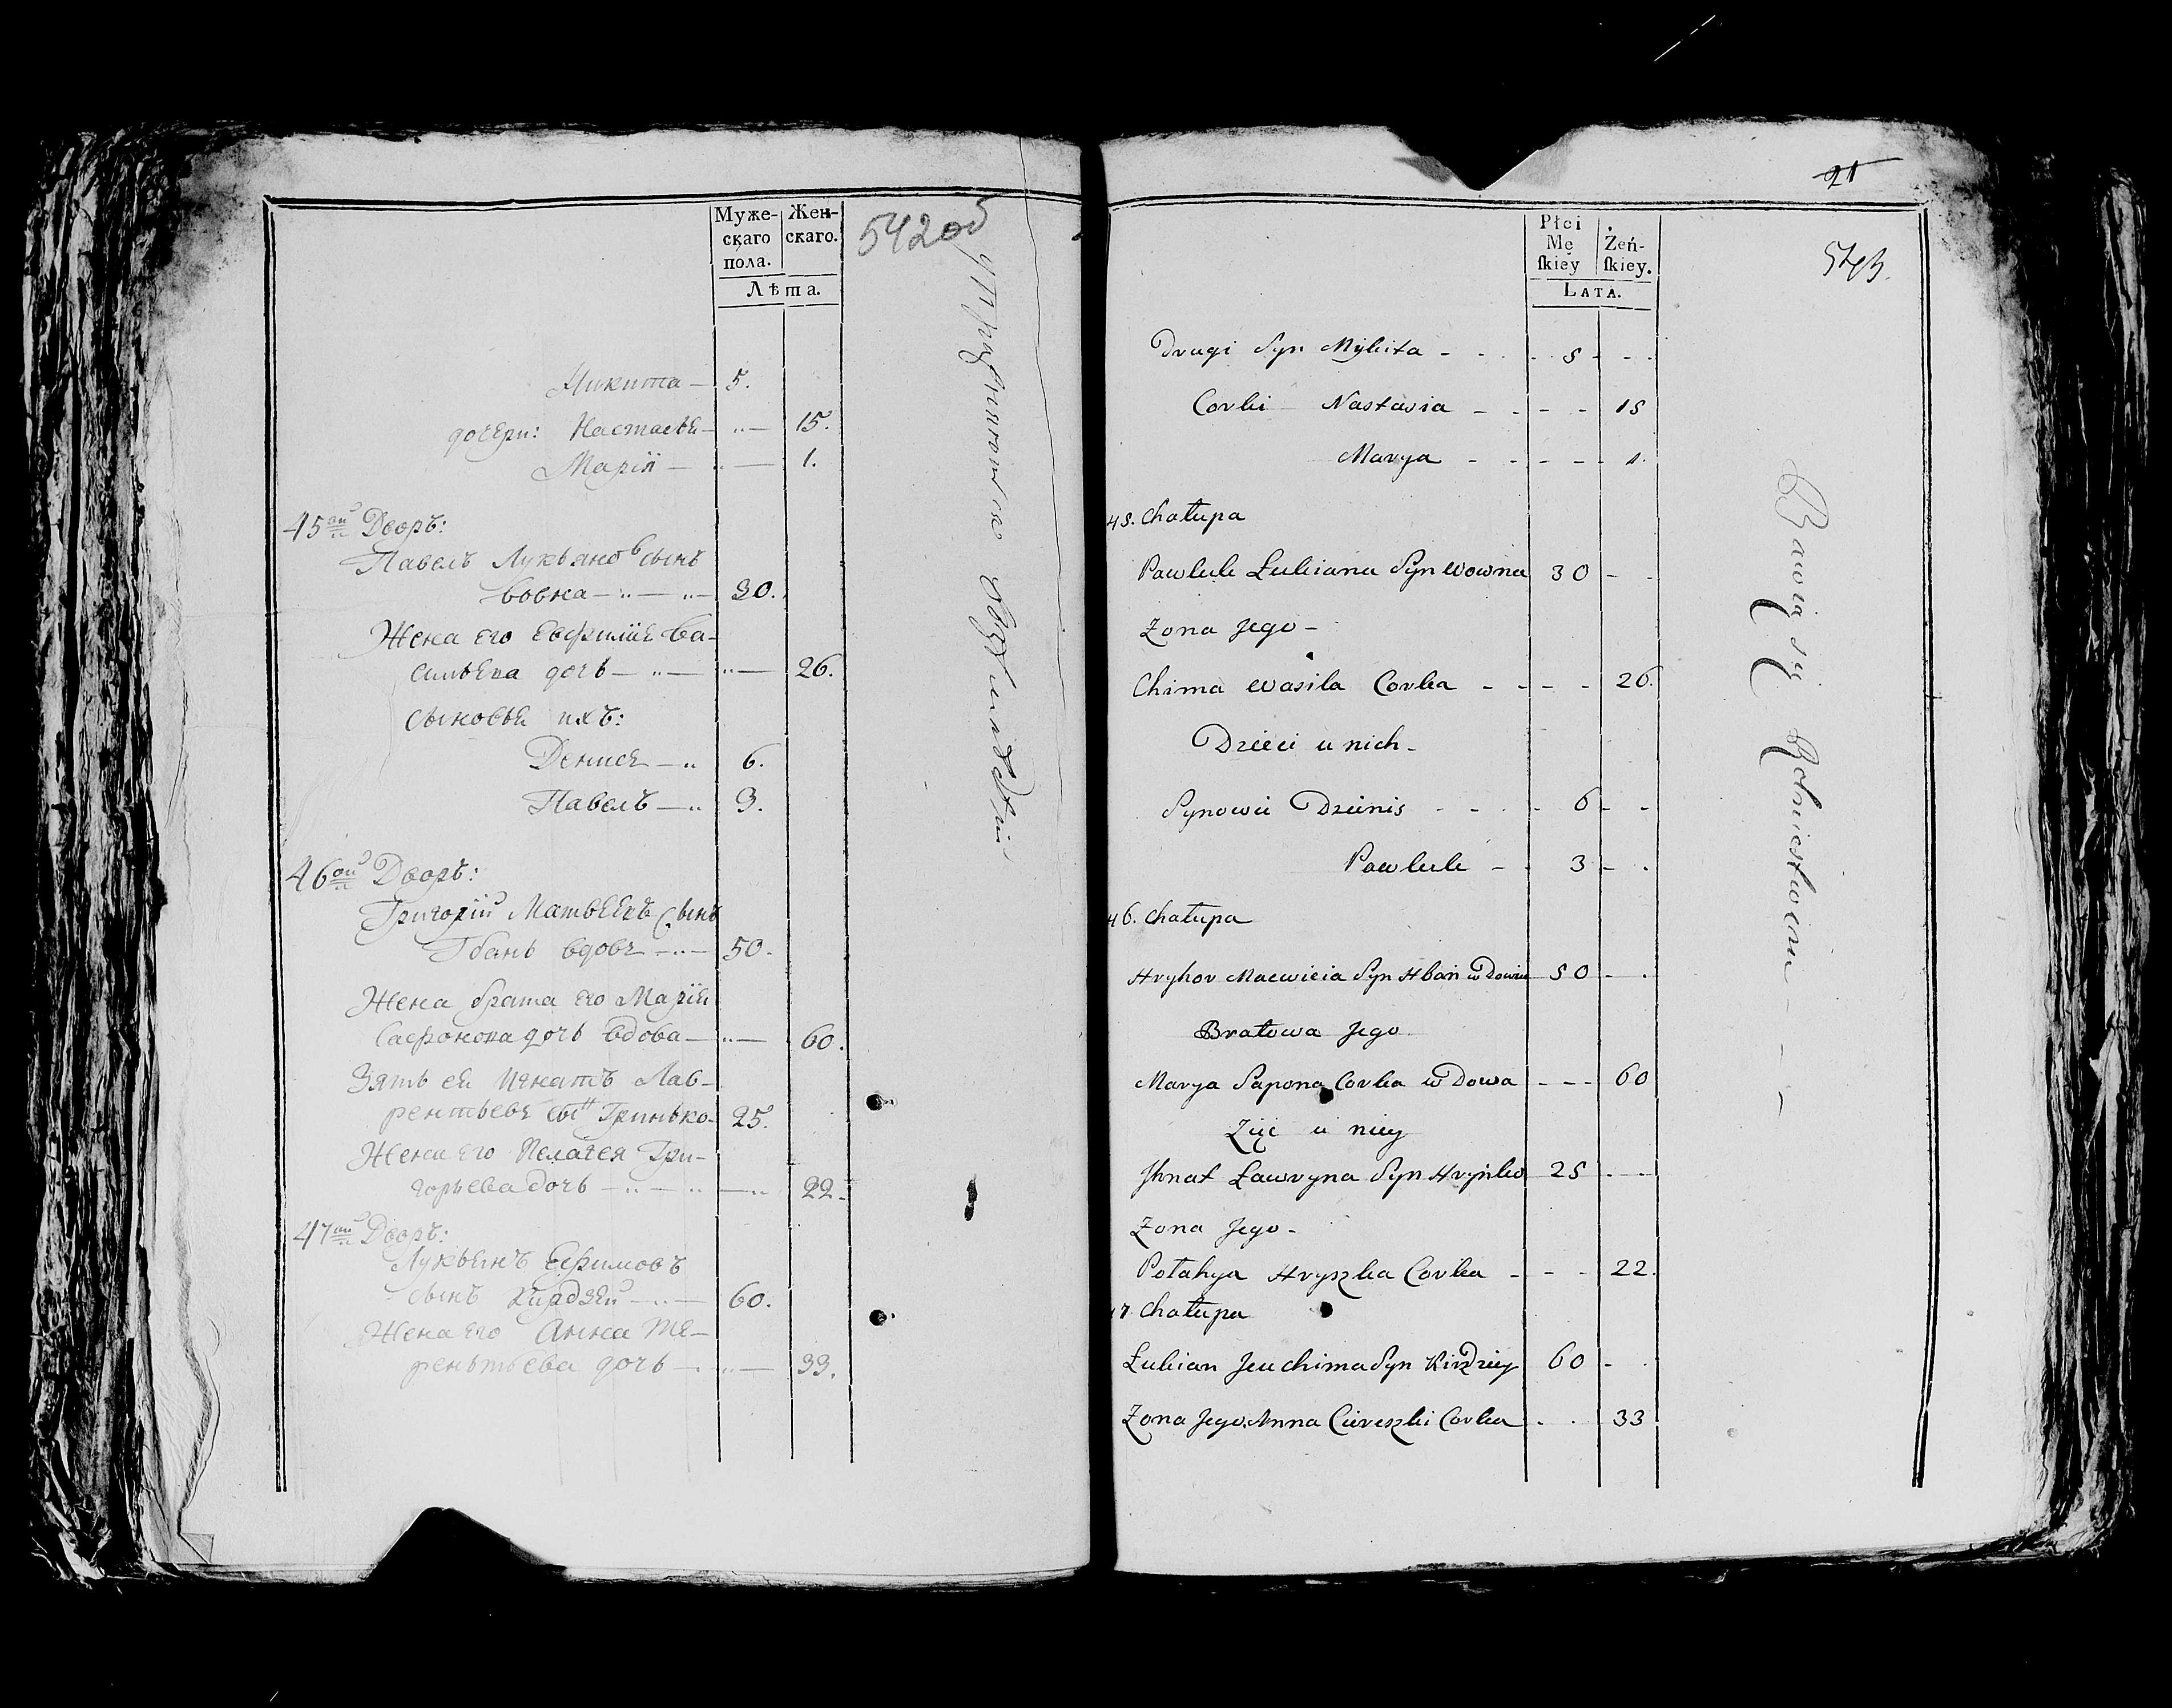 Муже-
скаго
пола.
Жен-
скаго.
Лѣта.
542 об
Никита — 5.
дочери: Настасья — 15.
Марія — 1.
45ой Дворъ:
Павелъ Лукьяновъ сынъ
Вовна — 30.
Жена его Евфимія Ва-
сильева дочь — 26.
сыновья ихъ:
Денисъ — 6.
Павелъ — 3.
46ой Дворъ:
Григорій Матвѣевъ сынъ
Гбань вдовъ — 50.
Жена брата его Марія
Сафонова дочь вдова — 60.
Зять ея Игнатъ Лав-
рентьевъ сынъ Гринько — 25.
Жена его Пелагея Гри-
горьева дочь — 22.
47ой Дворъ:
Лукьянъ Ефимовъ
сынъ Кирдзей — 60.
Жена его Анна Те-
рентьева дочь — 33.
упражняются
21
543.
Płci
Mę
ſkiey
Żeń-
ſkiey.
LATA.
Drugi Syn Mykita - - - 5 - - -
Corki Nastasia - - - - 15
Marya - - - - - 1.
45. Chałupa
Pawluk Lukiana Syn Wowna 30 - -
Zona Jego -
Chima Wasila Corka - - - - 26.
Dzieci u nich -
Synowie Dzienis - - - 6 - -
Pawluk - - 3 - -
46. Chałupa
Hryhor Maewieia Syn Hbań wdowiec 50 - -
Bratowa Jego
Marya Sapona Corka wdowa - - - 60
Zięć u niey
Jhnat Ławryna Syn Hryńko 25 - -
Zona Jego -
Połahya Hryszka Corka - - - 22.
47 Chałupa
Łukian Jeuchima Syn Kirdziey 60 - -
Zona Jego Anna Ciereszki Corka - - 33
Bawią się Rolnictwem - - -